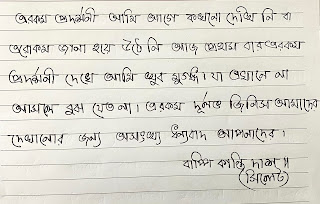 এরকম প্রদর্শনী আমি আগে কখনো দেখি নি বা
এরোকম জানা হয়ে উঠে নি আজ প্রথম বার এরকম
প্রদর্শনী দেখে আমি খুব মুগ্ধ। যা এখানে না
আসলে বুঝা যেত না। এরকম দূর্লভ জিনিস আমাদের
দেখানোর জন্য অসংখ্য ধন্যবাদ আপনাদের।
বাপ্পি কান্তি দাশ॥
(সিলেট)